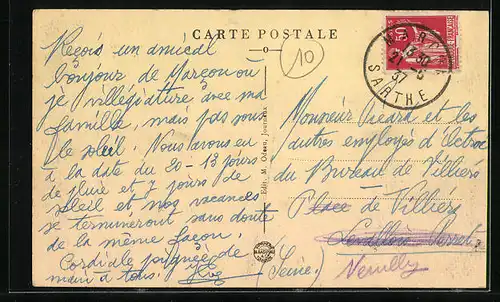 CARTE POSTALE
10
Reçois un amical
bonjour de Marçon ou
je villégiature avec ma
famille, mais pas sous
le soleil. Nous avons eu
à la date du 20 - 13 jours
de pluie et 7 jours de
soleil et nos vacances
se termineront sans doute
de la même façon.
Cordiale poignée de
main à tous.
Edit. M. Odeau, Journaux
13-30
21-8
37
SARTHE
Monsieur Picard et les
autres employés d'Octroi
du Bureau de Villiers
Place de Villiers
Levallois-Perret
(Seine) Neuilly